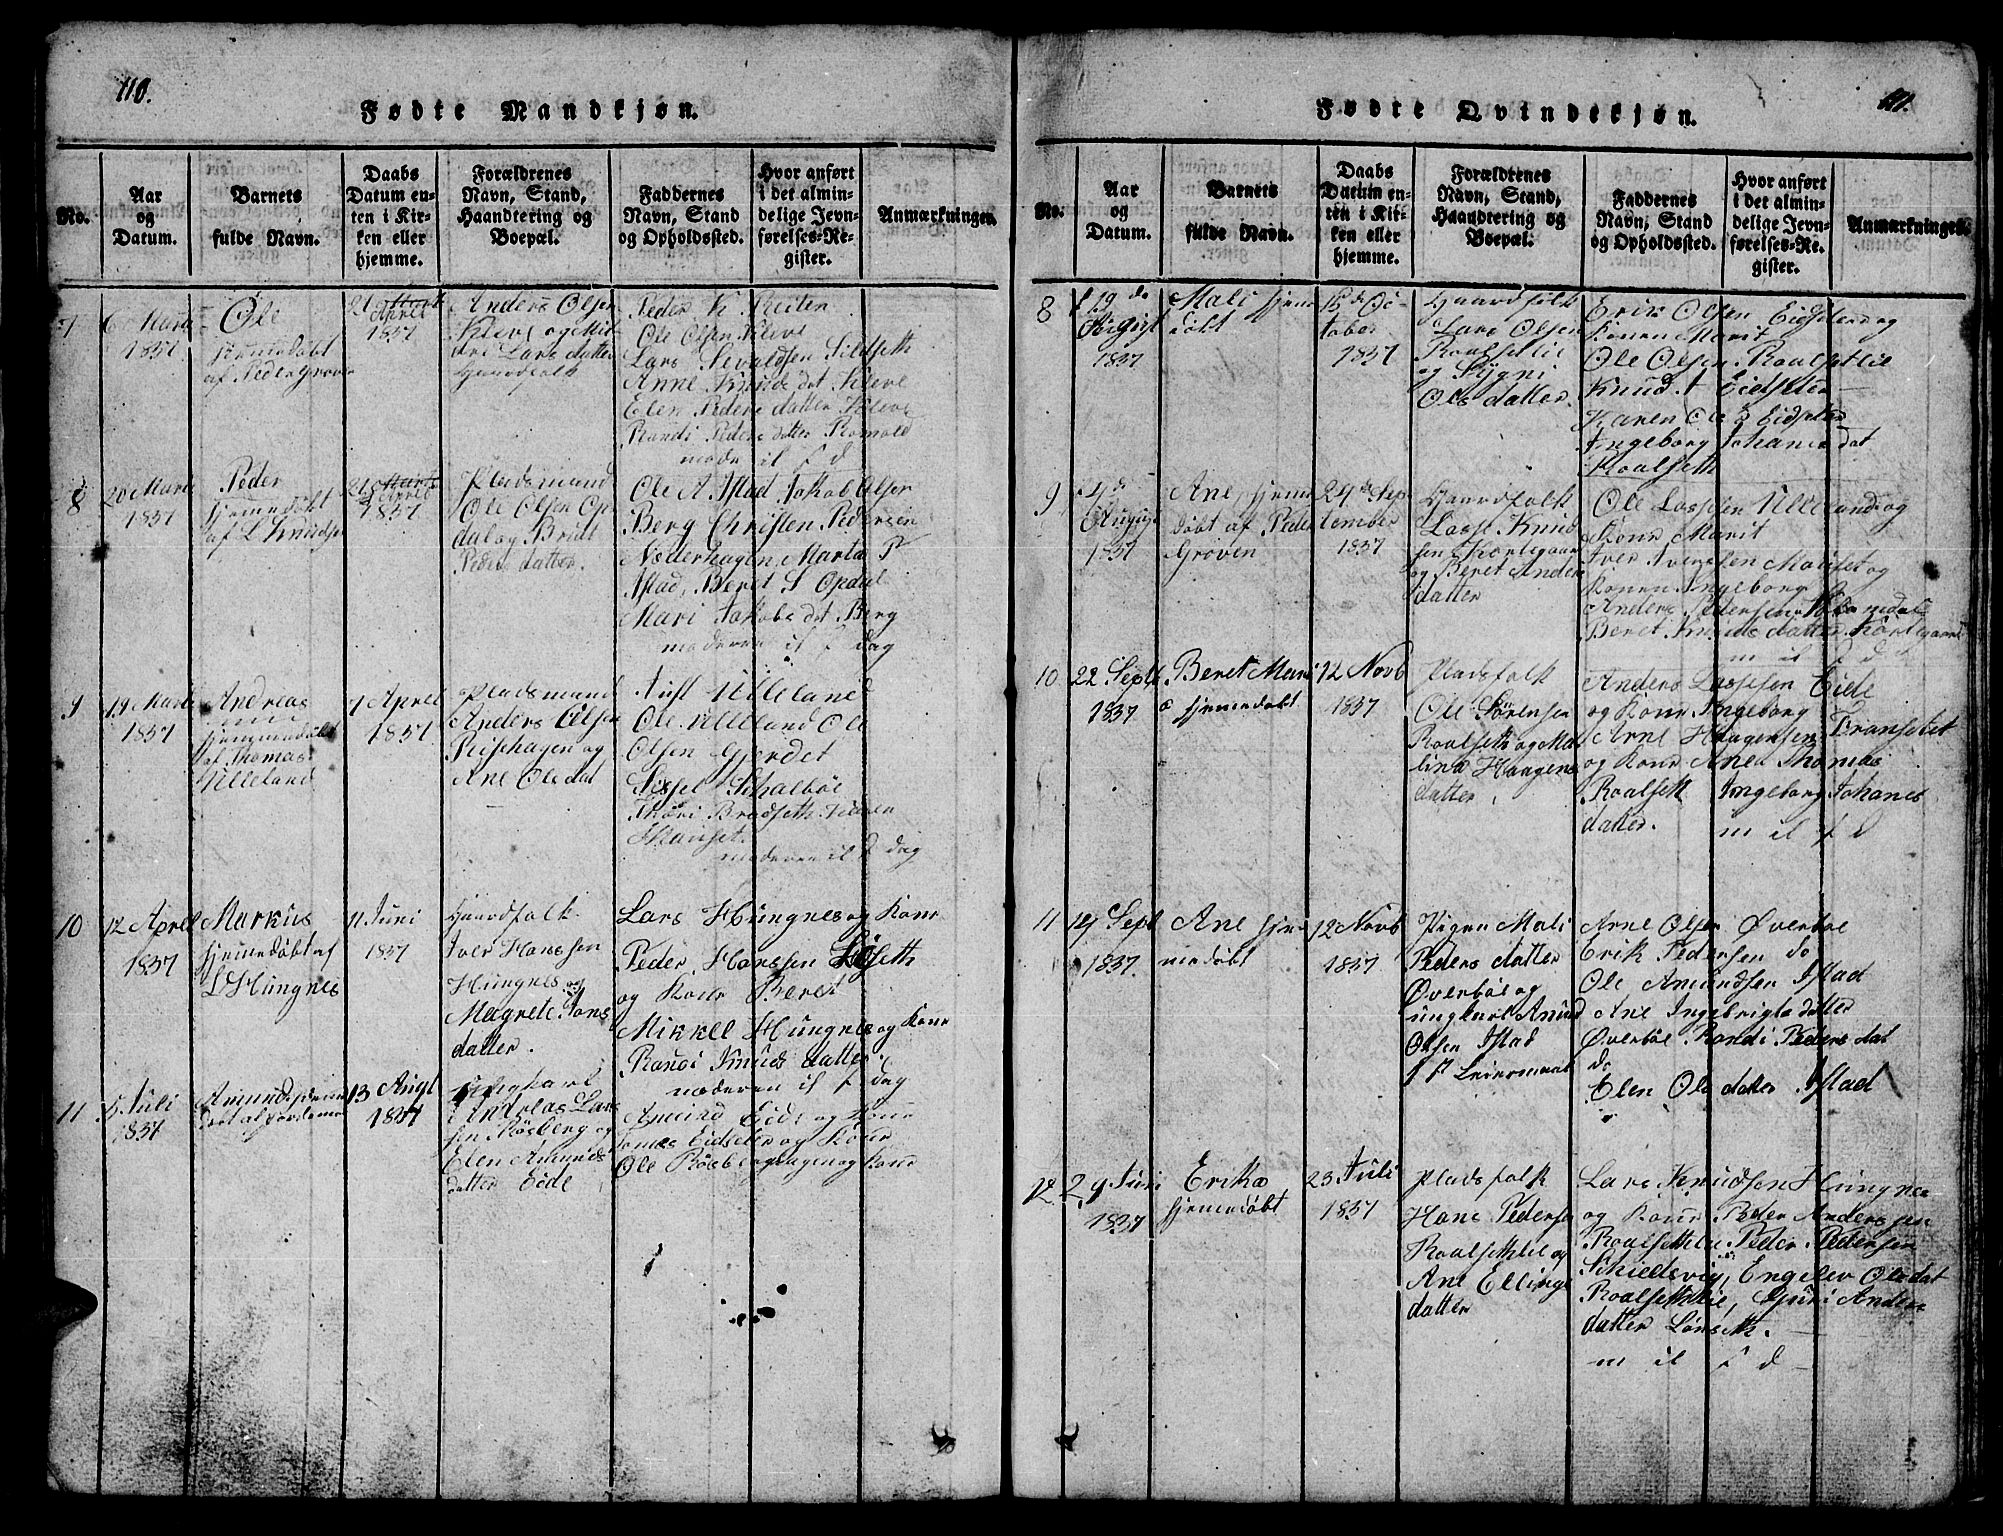 110.
Fødte Mandkjøn.
No.
Aar
og
Datum.
Barnets
fulde Navn.
Daabs
Datum en-
ten i Kir-
ken eller
hjemme.
Forældrenes
Navn, Stand,
Haandtering og
Boepæl.
Faddernes
Navn, Stand
og Opholdssted.
Hvor anført
i det almin-
delige Jevn-
førelses-Re-
gister.
Anmærkninger.
7
6 Marts
1837
Ole
hjemmedøbt
af Peder Grøven
21 Marts
Aprel
1837
Anders Olsen
Kleve og Mil
dri Lars datter
Gaardfolk
Peder K Reiten
Ole Olsen Kleve
Lars Sevaldsen Sildseth
Anne Knuds dat Kleve
Elen Peders datter Kleve
Randi Peders datter Romold
mode il f d
8
20 Marts
1837
Peder
hjemmedøbt
af L Knudsen
21 Marts
Aprel
1837
Pladsmand
Ole Olsen Op
dal og Bridt
Peders datter.
Ole A Istad Jakob Olsen
Berg Christen Pedersen
Nederhagen Marta P
Istad, Beret S Opdal
Mari Jakobs dat Berg
moderen il f dag
9
19 Marts
1837
Andreas
hjemmedøbt
af Thomas
Ulleland
7 Aprel
1837
Pladsmand
Anders Olsen
Risehagen og
Ane Ole dat
Aust Ulleland
Ole Ulleland Ole
Olsen Gjerdet
Sissel Schalbøe
Thori Bradseth
moderen il f dag
10
12 Aprel
1837
Markus
hjemmedøbt af
L Hungnes
11 Juni
1837
Gaardfolk
Iver Hanssen
Hungnes og
Magrete Jons
datter.
Lars Hungnes og Kone
Peder Hanssen Løseth
og Kone Beret
Mikkel Hungnes og Kone
Randi Knuds datter
moderen il f dag
11
5 Juli
1837
Amund hjemme
13 Augt
1837
ungkarl
Andreas Lars
sen Røsberg og
Elen Amunds
datter Eide
Amund Eide og Kone
Eidseter og Kone
Ole Røsberghagen og Kone
111.
Fødte Qvindekjøn.
No.
Aar
og
Datum.
Barnets
fulde Navn.
Daabs
Datum en-
ten i Kir-
ken eller
hjemme.
Forældrenes
Navn, Stand,
Haandtering og
Boepæl.
Faddernes
Navn, Stand
og Opholdssted.
Hvor anført
i det almin-
delige Jevn-
førelses-Re-
gister.
Anmærkninger.
8
19 de
August
1837
Mali hjeme
døbt
15 de Oc-
tober
1837
Gaardfolk
Lars Olsen
Roalsetlie
og Sygni
Ols datter.
Erik Olsen Eidseter og
Konen Marit
Ole Olsen Roalsetlie
Knud A Eidseter
Karen Ole D Eidseter
Ingeborg Johanes dat
Roalseth
9
August
1837
Ane, hjeme
døbt af Peder
Grøven
24 de Sep
tember
1837
Gaardfolk
Lasse Knud
sen Kortgaar
og Beret Anders
datter
Ole Lassesen Ulleland og
Kone Marit
Iver Iversen Moeset og
Konen Ingeborg
Anders Pedersen
Beret Knuds datter Kortgaard
m il f d
10
22 Sept
1837
Beret Mari
hjemedøbt
12 Novb
1837
Pladsfolk
Ole Sørensen
Roalseth og Ma
lina Haagens
datter,
Anders Lassesen Eide
og Kone Ingeborg
Arne Haagensen Transetet
og Kone Ane Thomas
Roalseth Ingeborg Johanes
datter.
m il f d
11
14 Sept
1837
Ane hje-
medøbt
12 Novb
1837
Pigen Mali
Peders datter
Øverbøe og
ungkarl Amund
Olsen Istad
1 st Leiermaal
Arne Olsen Øverbøe
Erik Pedersen do
Ole Amundsen Istad
Ane Ingebrigts datter
Øverbøe Randi Peders dat
do
Elen Ole datter Istad
12
29 Juni
1837
Erika
hjemedøbt
23 Juli
1837
Pladsfolk
Hans Pedersen
Roalsethlie og
Ane Ellings
datter
Lars Knudsen Hungnes
og Kone Peder Anderssen
Roalsethlie Peder Pedersen
Schiedsvig, Engelev Ole dat
Roalsethlie, Guri Anders
datter Lønseth.
m il f d